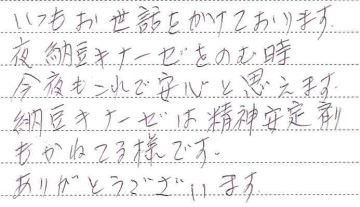 いつもお世話をかけております.
夜納豆キナーゼをのむ時
今夜もこれで安心と思えます.
納豆キナーゼは精神安定剤
もかねてる様です.
ありがとうございます.